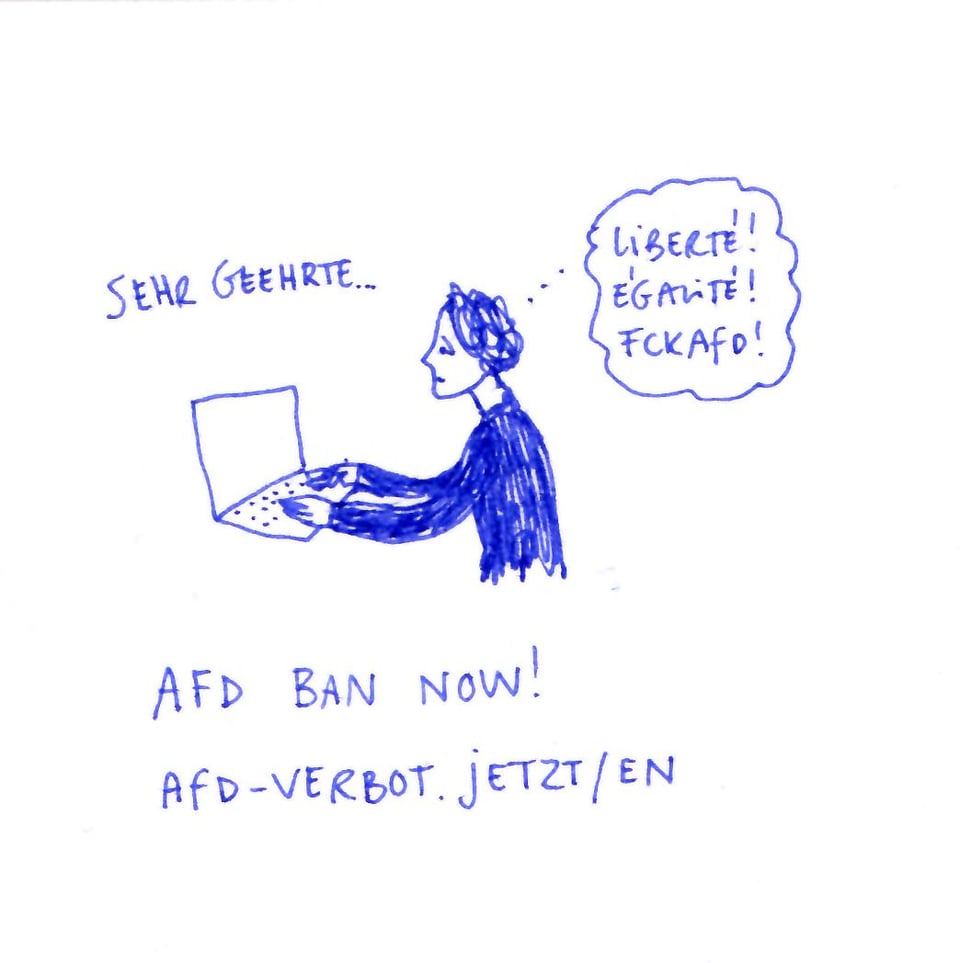 SEHR GEEHRTE...
LIBERTÉ!
ÉGALITÉ!
FCKAFD!
AFD BAN NOW!
AFD-VERBOT.JETZT/EN